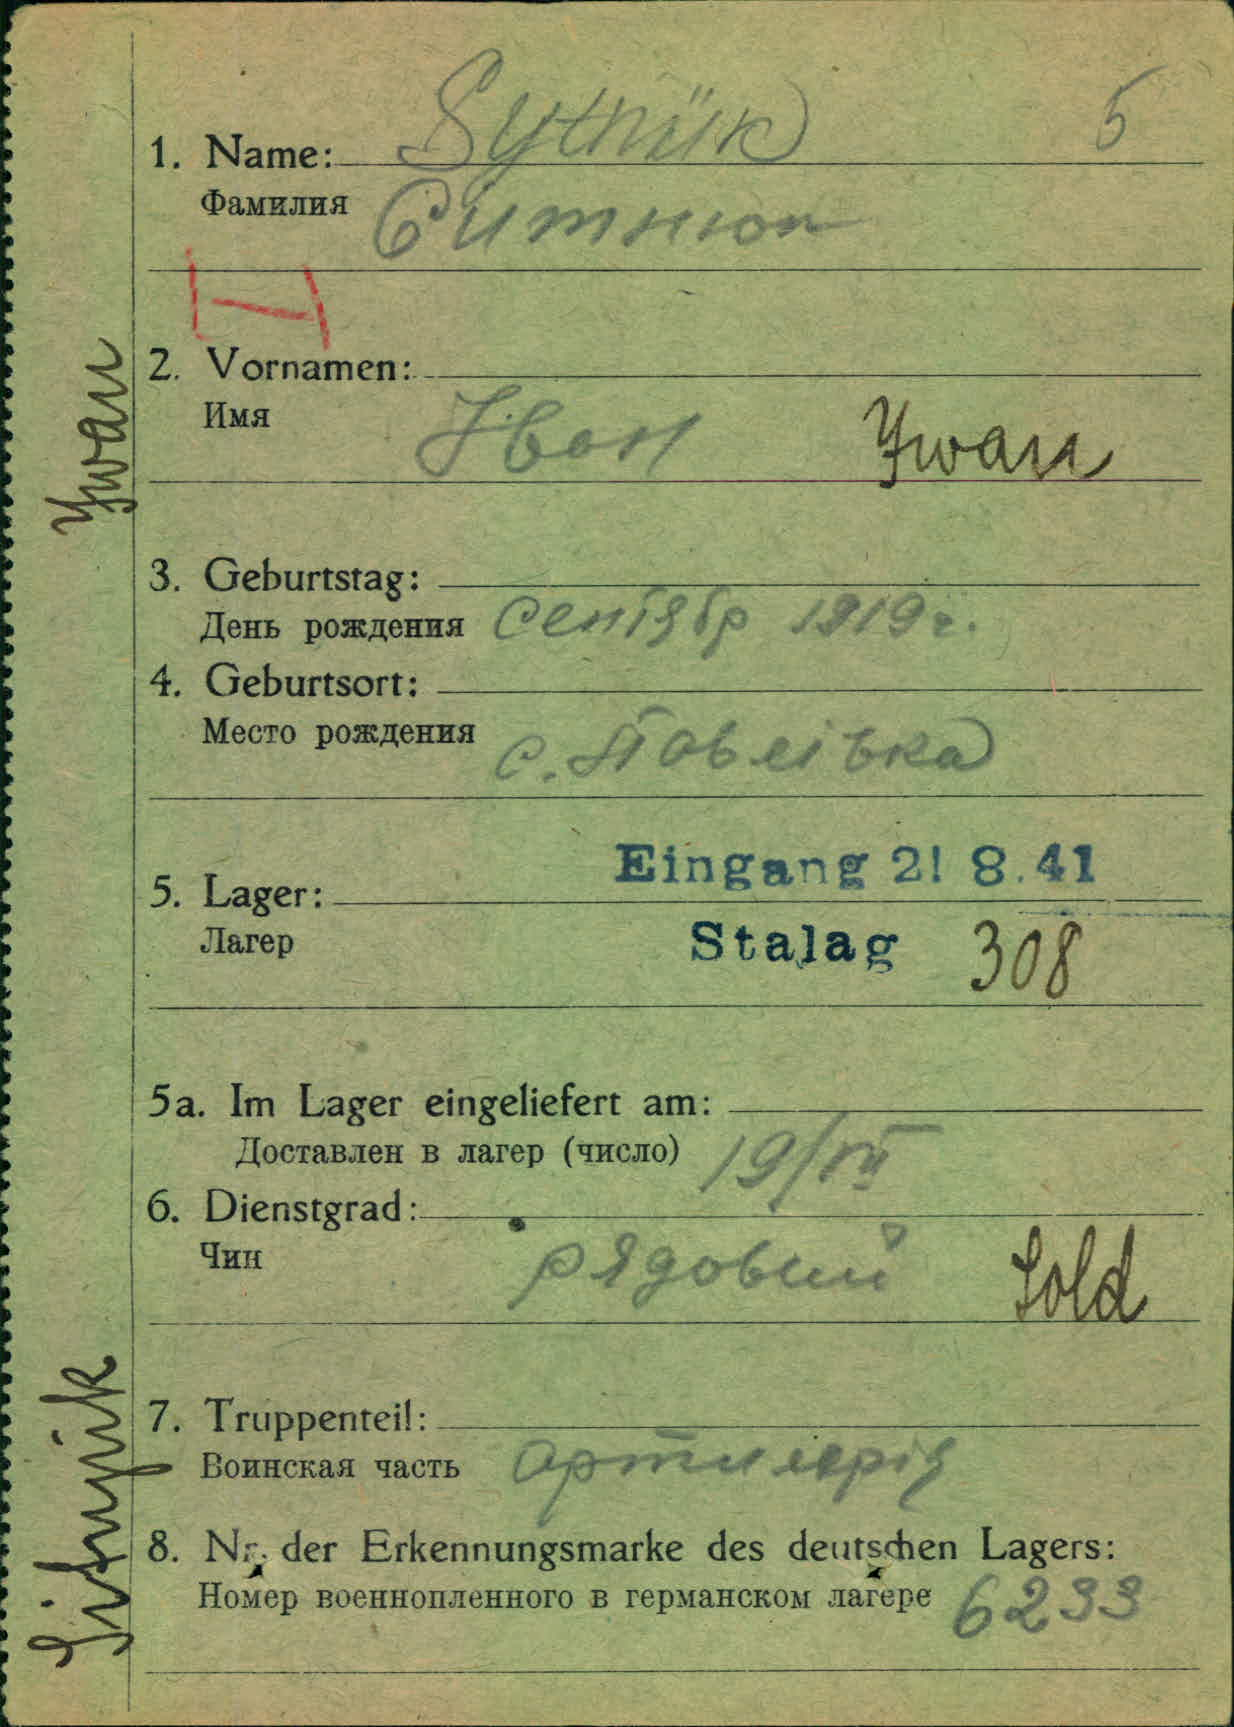 Sytnük 5
1. Name:
Фамилия Ситнюк
2. Vornamen:
Имя Іван Ywan
3. Geburtstag:
День рождения сентябр 1919 г.
4. Geburtsort:
Место рождения с. Павлівка
Eingang 21 8.41
5. Lager:
Лагер Stalag 308
5a. Im Lager eingeliefert am:
Доставлен в лагер (число) 19/VII
6. Dienstgrad:
Чин рядовий Sold
7. Truppenteil:
Воинская часть артилерія
8. Nr. der Erkennungsmarke des deutschen Lagers:
Номер военнопленного в германском лагере 6233
Sitnjuk
Ywan